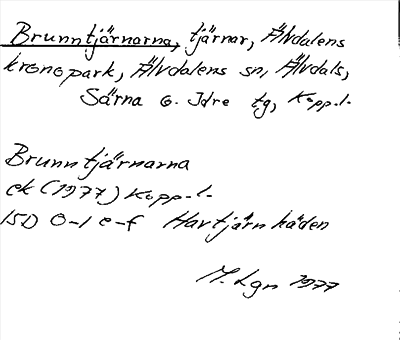 Brunntjärnarna, tjärnar, Älvdalens
kronopark, Älvdalens sn, Älvdals,
Särna o. Idre tg, Kopp. l.
Brunntjärnarna
ek (1977) Kopp. l.
15D 0-1 e-f Havtjärnhäden
M. Lgn 1977